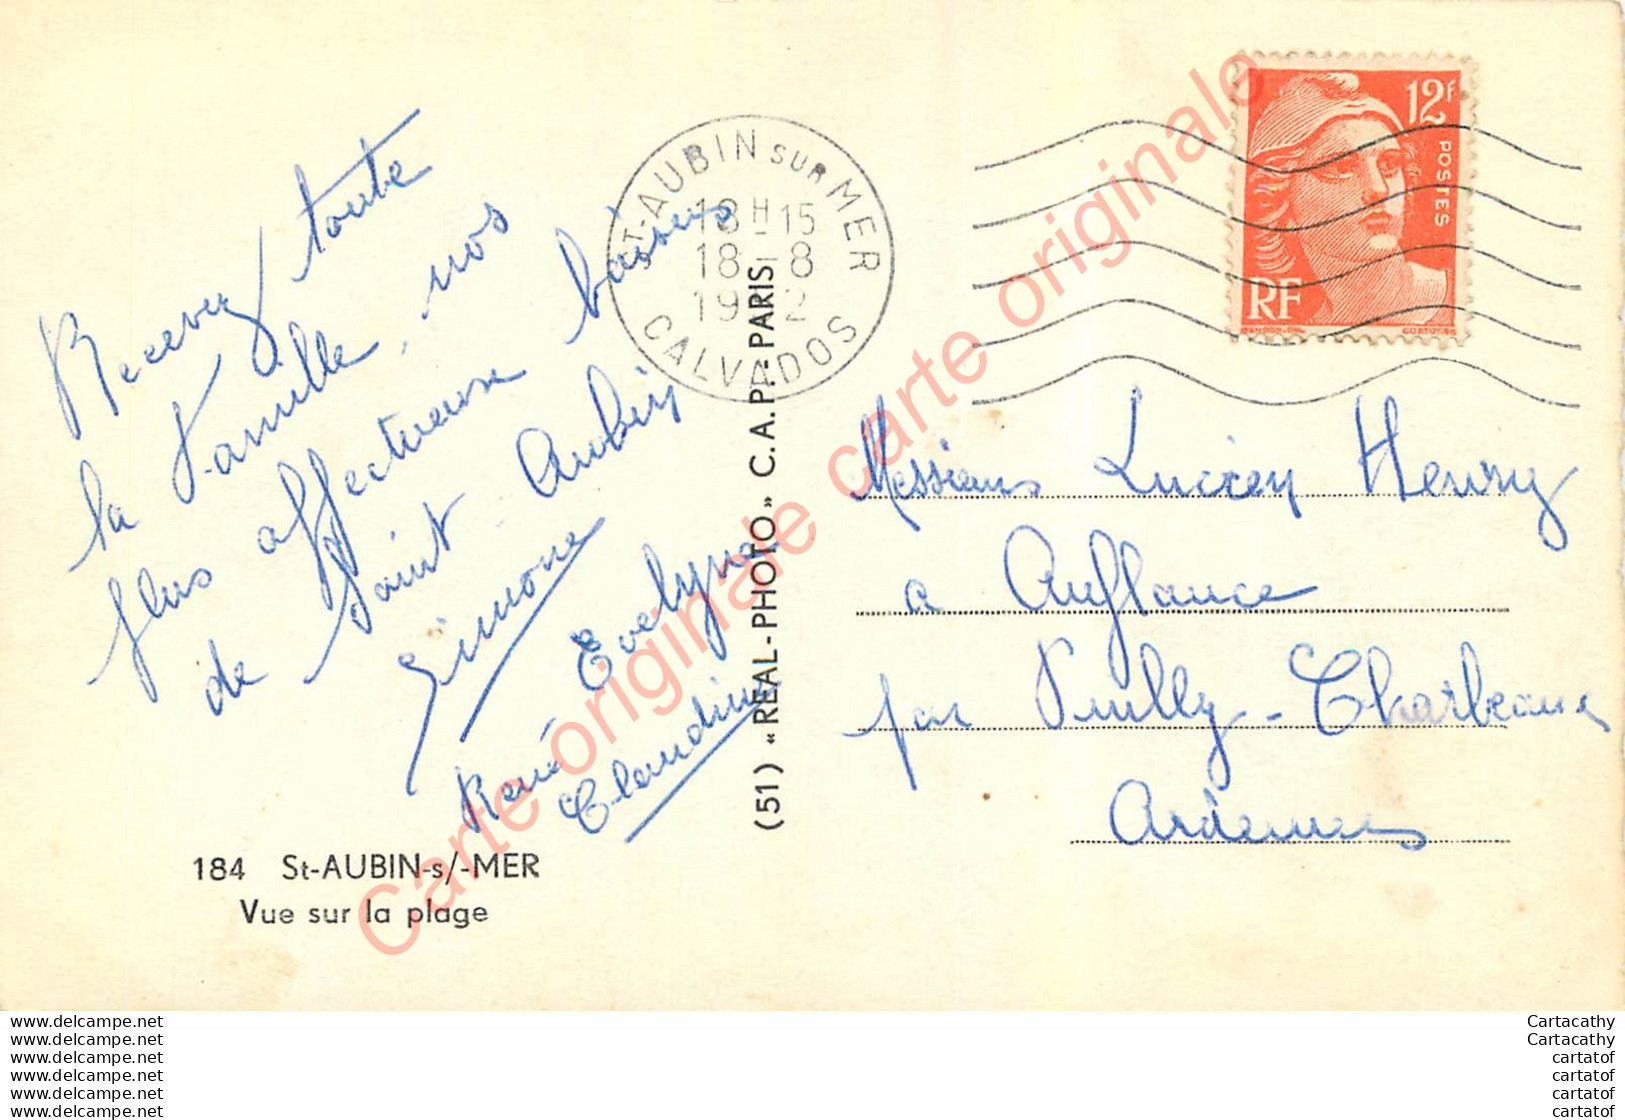 Recevez toute
la famille, nos
plus affectueux baisers
de Saint Aubin
Simone
Evelyne
René
Claudine
184 St-AUBIN-s/-MER
Vue sur la plage
(51) « REAL-PHOTO » C. A. P. - PARIS
ST-AUBIN SUR MER
18H15
18-8
CALVADOS
12F
POSTES
RF
Messieurs Lucien Henry
a Auflance
par Puilly-Charbeaux
Ardennes
Carte originale carte originale carte originale
www.delcampe.net
www.delcampe.net
www.delcampe.net
www.delcampe.net
www.delcampe.net
www.delcampe.net
Cartacathy
Cartacathy
cartatof
cartatof
cartatof
cartatof